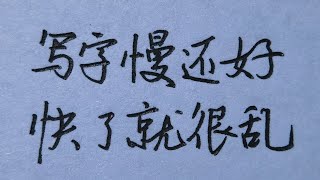 写字慢还好
快了就很乱